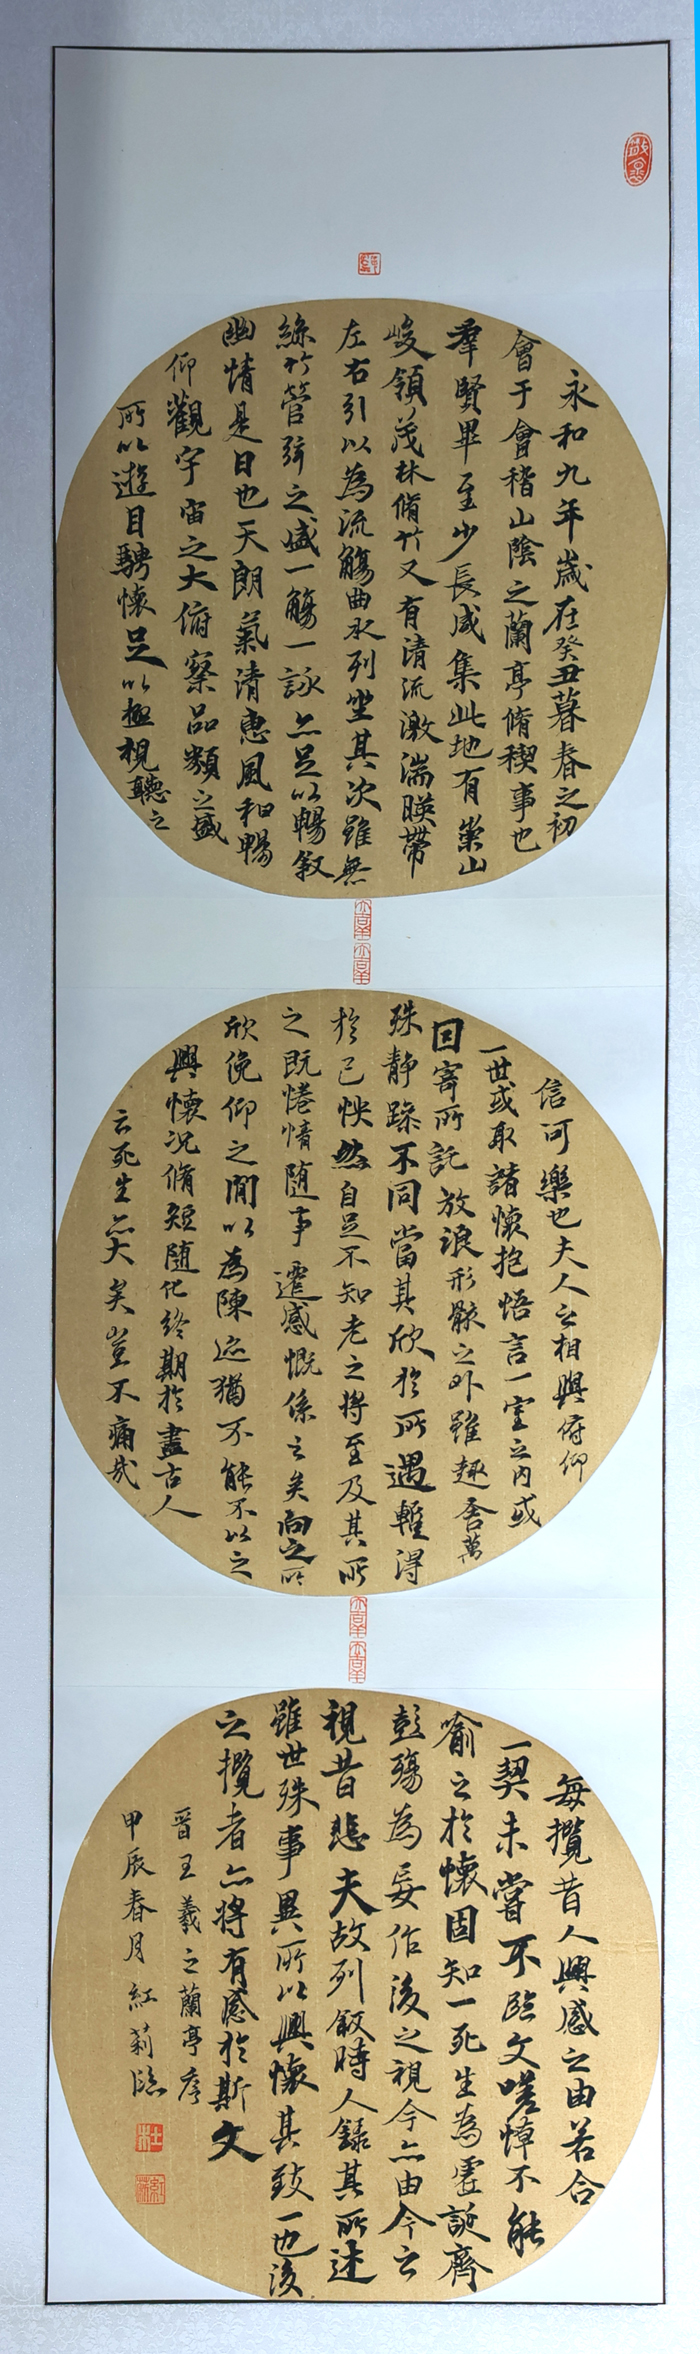 永和九年歲在癸丑暮春之初
會于會稽山陰之蘭亭脩稧事也
羣賢畢至少長咸集此地有崇山
峻領茂林脩竹又有清流激湍暎帶
左右引以為流觴曲水列坐其次雖無
絲竹管弦之盛一觴一詠亦足以暢叙
幽情是日也天朗氣清惠風和暢
仰觀宇宙之大俯察品類之盛
所以遊目騁懷足以極視聽之
信可樂也夫人之相與俯仰
一世或取諸懷抱悟言一室之內或
因寄所託放浪形骸之外雖趣舍萬
殊静躁不同當其欣於所遇暫得
於己怏然自足不知老之將至及其所
之既惓情隨事遷感慨係之矣向之所
欣俛仰之間以為陳迹猶不能不以之
興懷況脩短隨化終期於盡古人
云死生亦大矣豈不痛哉
每攬昔人興感之由若合
一契未嘗不臨文嗟悼不能
喻之於懷固知一死生為虛誕齊
彭殤為妄作後之視今亦由今之
視昔悲夫故列叙時人錄其所述
雖世殊事異所以興懷其致一也後
之攬者亦將有感於斯文
晉王羲之蘭亭序
甲辰春月紅莉臨